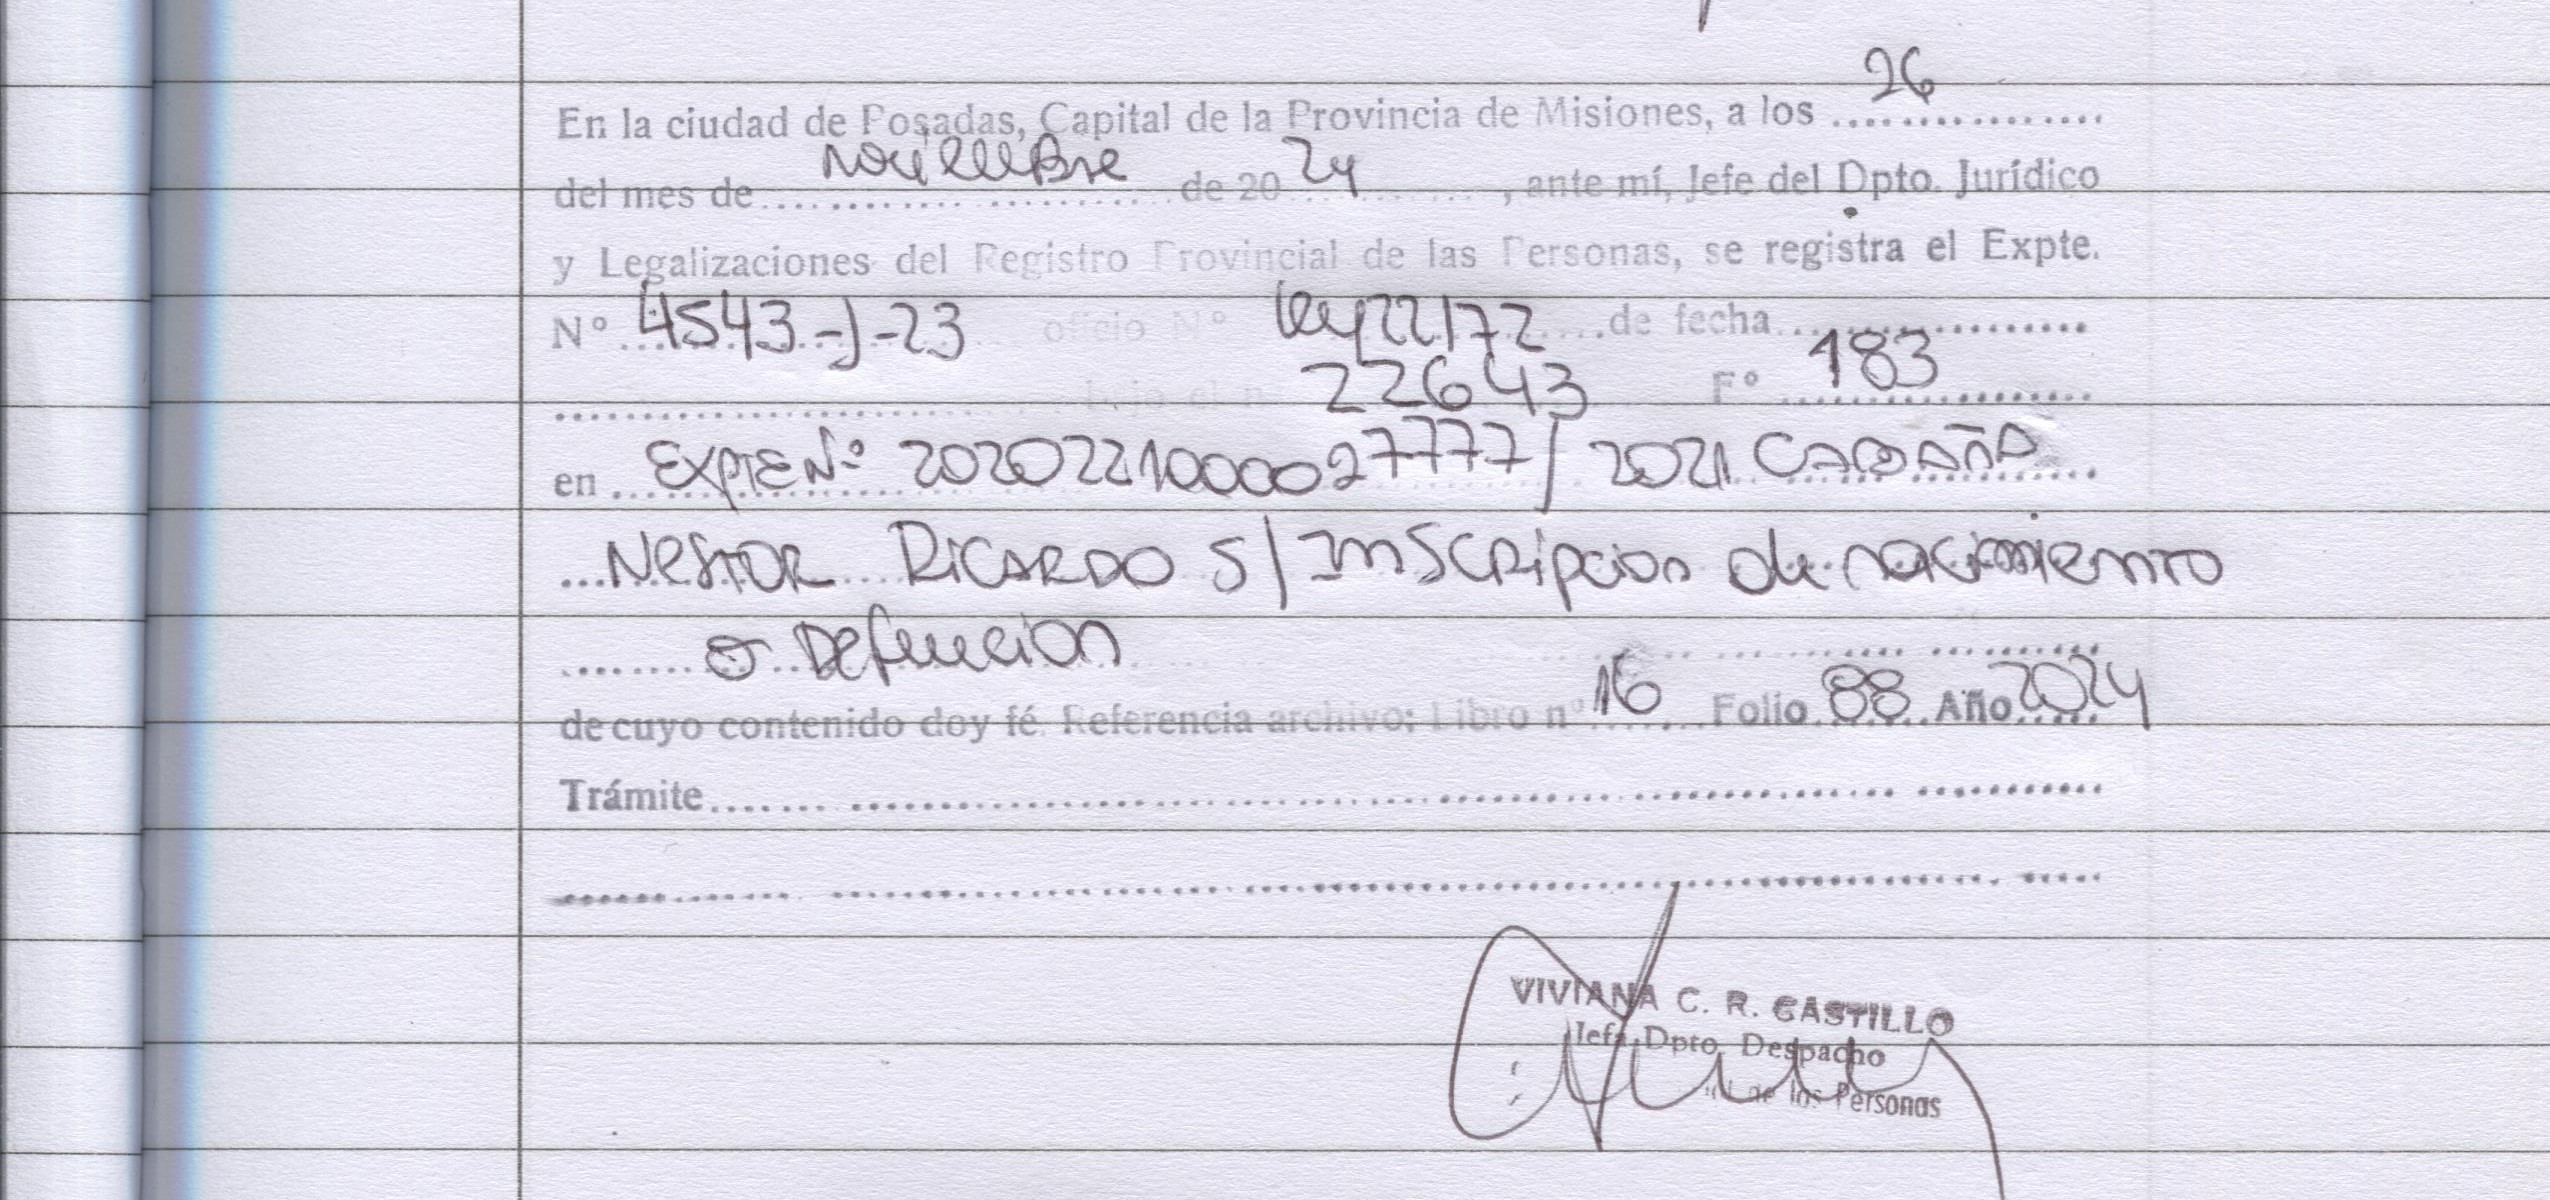 26
En la ciudad de Posadas, Capital de la Provincia de Misiones, a los ................
del mes de noviembre de 20 24 , ante mí, Jefe del Dpto. Jurídico
y Legalizaciones del Registro Provincial de las Personas, se registra el Expte.
N° 4543-J-23 oficio N° ley 22172 de fecha
bajo el n 22643 F° 183
en EXPTE N° 20202210000 27777/2021 CABAÑA
NESTOR RICARDO S/Inscripcion de nacimiento
o Defuncion
de cuyo contenido doy fé. Referencia archivo; Libro n° 16 Folio 88 Año 2024
Trámite
VIVIANA C. R. CASTILLO
Jefa Dpto. Despacho
de los Personas